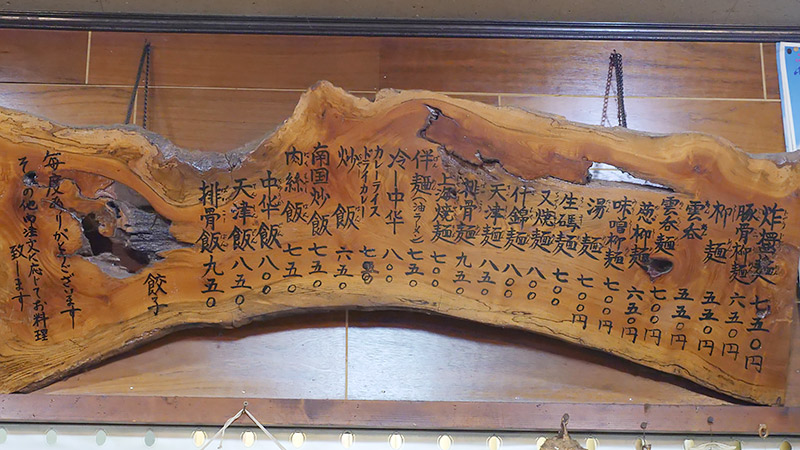 炸醤麺 七五〇円
豚骨柳麺 六五〇円
柳麺 五五〇円
雲呑 五五〇円
雲呑麺 七〇〇円
葱柳麺 六五〇円
味噌柳麺 七〇〇円
湯麺 七〇〇円
生碼麺 七〇〇円
叉焼麺 八〇〇
什錦麺 八〇〇
天津麺 八五〇
排骨麺 九五〇
上海焼麺 七〇〇
伴麺(油ラーメン) 七五〇
冷し中华 八〇〇
カレーライス
ドライカレー 七〇〇
炒飯 六五〇
南国炒飯 七五〇
肉絲飯 七五〇
中华飯 八〇〇
天津飯 八五〇
排骨飯 九五〇
餃子
毎度ありがとうございます
その他御注文に応じてお料理
致します